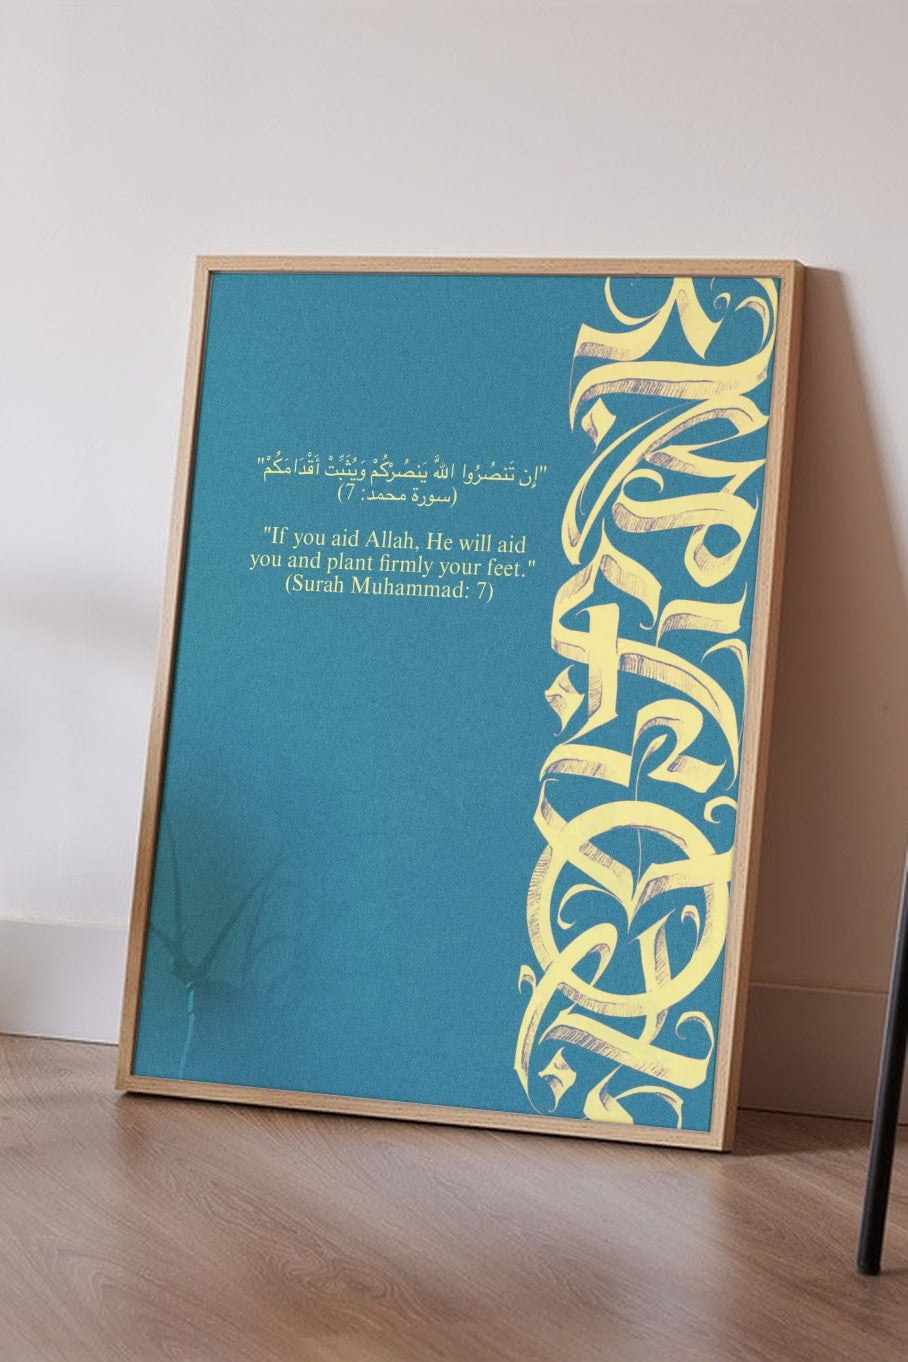 "إِن تَنصُرُوا اللَّهَ يَنصُرْكُمْ وَيُثَبِّتْ أَقْدَامَكُمْ"
(سورة محمد: 7)
"If you aid Allah, He will aid
you and plant firmly your feet."
(Surah Muhammad: 7)